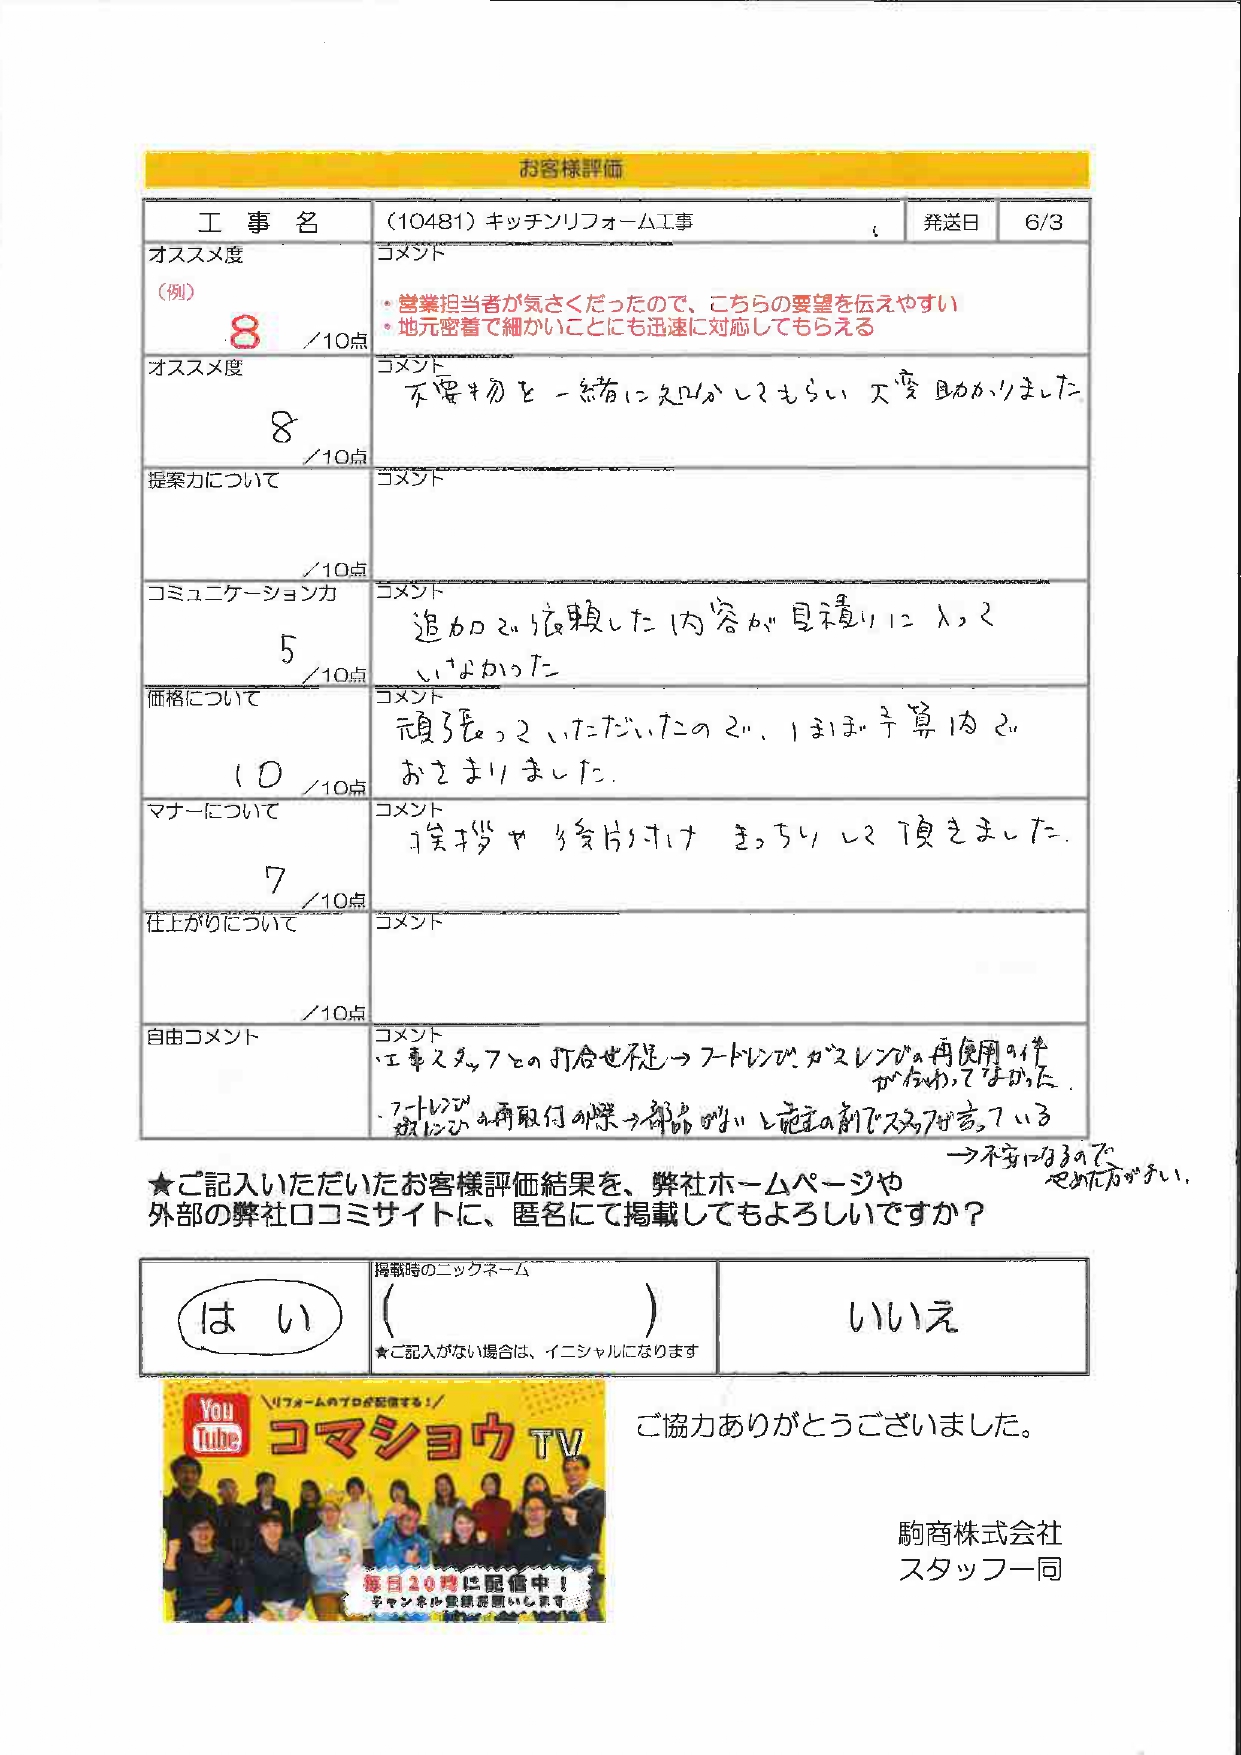 お客様評価
工事名 （10481）キッチンリフォーム工事 発送日 6/3
オススメ度 コメント
（例）
・営業担当者が気さくだったので、こちらの要望を伝えやすい
8 ／10点 ・地元密着で細かいことにも迅速に対応してもらえる
オススメ度 コメント
不要物を一緒に処分してもらい大変助かりました
8
／10点
提案力について コメント
／10点
コミュニケーション力 コメント
追加で依頼した内容が見積りに入って
5 ／10点 いなかった
価格について コメント
頑張っていただいたので、ほぼ予算内で
10 ／10点 おさまりました.
マナーについて コメント
挨拶や後片付けきっちりして頂きました.
7
／10点
仕上がりについて コメント
／10点
自由コメント コメント
・工事スタッフとの打合せ不足→フードレンジ.ガスレンジの再使用の件
が伝わってなかった.
・フードレンジ
ガスレンジの再取付の際→部品がないと施主の前でスタッフが言っている
→不安になるので
やめた方がよい.
★ご記入いただいたお客様評価結果を、弊社ホームページや
外部の弊社口コミサイトに、匿名にて掲載してもよろしいですか？
掲載時のニックネーム
はい （ ） いいえ
★ご記入がない場合は、イニシャルになります
You Tube
＼リフォームのプロが配信する！／
コマショウTV
毎日20時に配信中！
チャンネル登録お願いします
ご協力ありがとうございました。
駒商株式会社
スタッフ一同